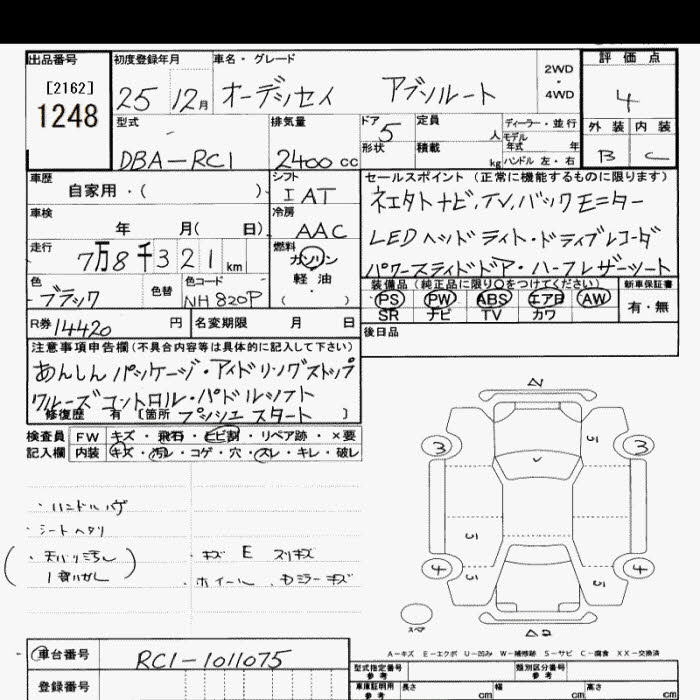 出品番号 初度登録年月 車名・グレード 2WD・4WD 評価点
[2162]
1248
25 12月 オーデッセイ アブソルート 4
型式 排気量 ドア 定員 人 ディーラー・並行 外装 内装
DBA-RC1 2400cc 5 モデル年式 年 B C
形状 積載 kg ハンドル 左・右
車歴 シフト セールスポイント (正常に機能するものに限ります)
自家用・( ) IAT
車検 冷房
年 月( 日) AAC
ネエタトナビ,TV,バックモニター
LEDヘッドライト・ドライブレコーダ
パワースライドドア・ハーフレザーシート
走行 燃料
7万8千321km ガソリン
軽油
( )
色 色替 色コード
ブラック NH820P
装備品 (純正品に限り○をつけてください) 新車保証書
PS PW ABS エアB AW 有・無
SR ナビ TV カワ
R券 14420 円 名変期限 月 日
後日品
注意事項申告欄 (不具合内容等は具体的に記入して下さい)
あんしんパッケージ・アイドリングストップ
クルーズコントロール・パドルシフト
修復歴 有 [箇所 プッシュスタート ]
検査員 FW キズ・飛石・ヒビ割・リペア跡・×要
記入欄 内装 キズ・汚レ・コゲ・穴・スレ・キレ・破レ
・ハンドルハゲ
・シートヘタリ
・天バリ汚レ
・キズ E スリキズ
・ホイール、
ミラーキズ
3 3
4 4
スペア
A-キズ E-エクボ U-凹み W-補修跡 S-サビ C-腐食 XX-交換済
車台番号 RC1-1011075
登録番号
型式指定番号 参考 類別区分番号 参考
車庫証明用 参考 長さ cm 幅 cm 高さ cm